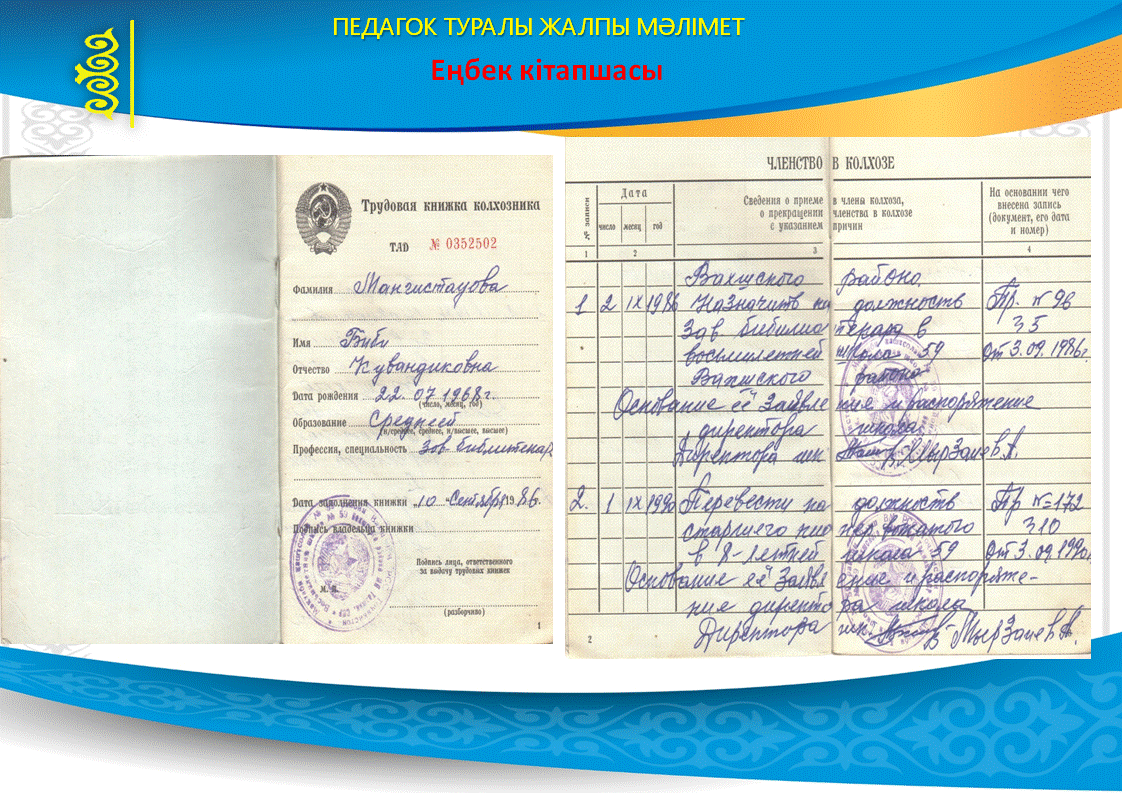 ПЕДАГОК ТУРАЛЫ ЖАЛПЫ МӘЛІМЕТ
Еңбек кітапшасы
Трудовая книжка колхозника
ТАД № 0352502
Фамилия Мангистауова
Имя Биби
Отчество Кувандиковна
Дата рождения 22.07.1968г.
(число, месяц, год)
Образование Средней
(н/среднее, среднее, н/высшее, высшее)
Профессия, специальность Зав библитекар
Дата заполнения книжки „10 “Сентябрь1986.
Подпись владельца книжки
Подпись лица, ответственного
за выдачу трудовых книжек
М. П.
(разборчиво)
1
ЧЛЕНСТВО В КОЛХОЗЕ
№ записи
Дата
число месяц год
Сведения о приеме в члены колхоза,
о прекращении членства в колхозе
с указанием причин
На основании чего
внесена запись
(документ, его дата
и номер)
1 2 3 4
Вахшского района.
1 2 IX 1986 Назначить на должность Пр. №96
Зав библиотекара в 35
восьмилетней школа 59 От 3.09.1986г.
Вахшского района
Основание её Заявление и распоряжение
директора школа
Директора шк. МырЗаев А.
2. 1 IX 1990 Перевести на должность Пр №=172
старшего пионервожатого 310
в 8-летней школа 59 От 3.09.1990.
Основание её Заявление и распоряже-
ние директора школа
Директора шк. МырЗаев А.
2